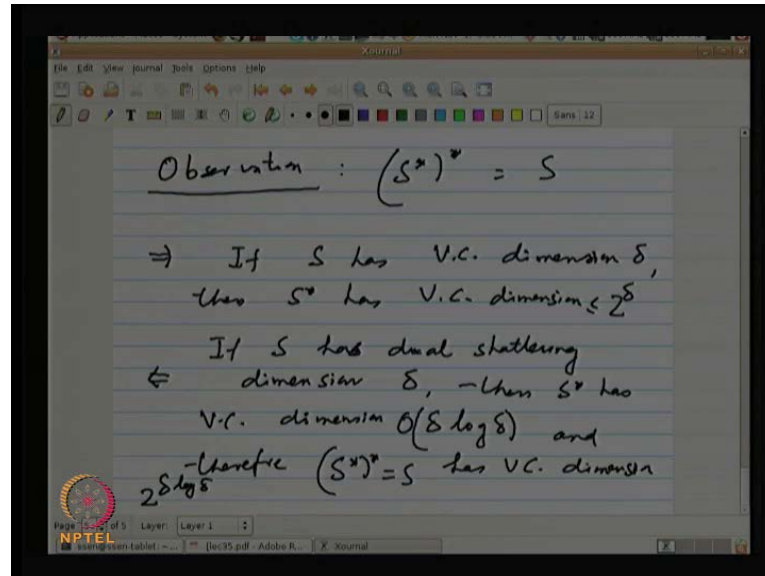 Xournal
File Edit View Journal Tools Options Help
T Sans 12
Observation : (S*)* = S
⇒ If S has V.C. dimension δ,
then S* has V.C. dimension ≤ 2^δ
If S has dual shattering
⇐ dimension δ, then S* has
V.C. dimension O(δ log δ) and
therefore (S*)* = S has VC. dimension
2^δ log δ
Page of 5 Layer: Layer 1
NPTEL
ssen@ssen-tablet: ~... [lec35.pdf - Adobe R... Xournal